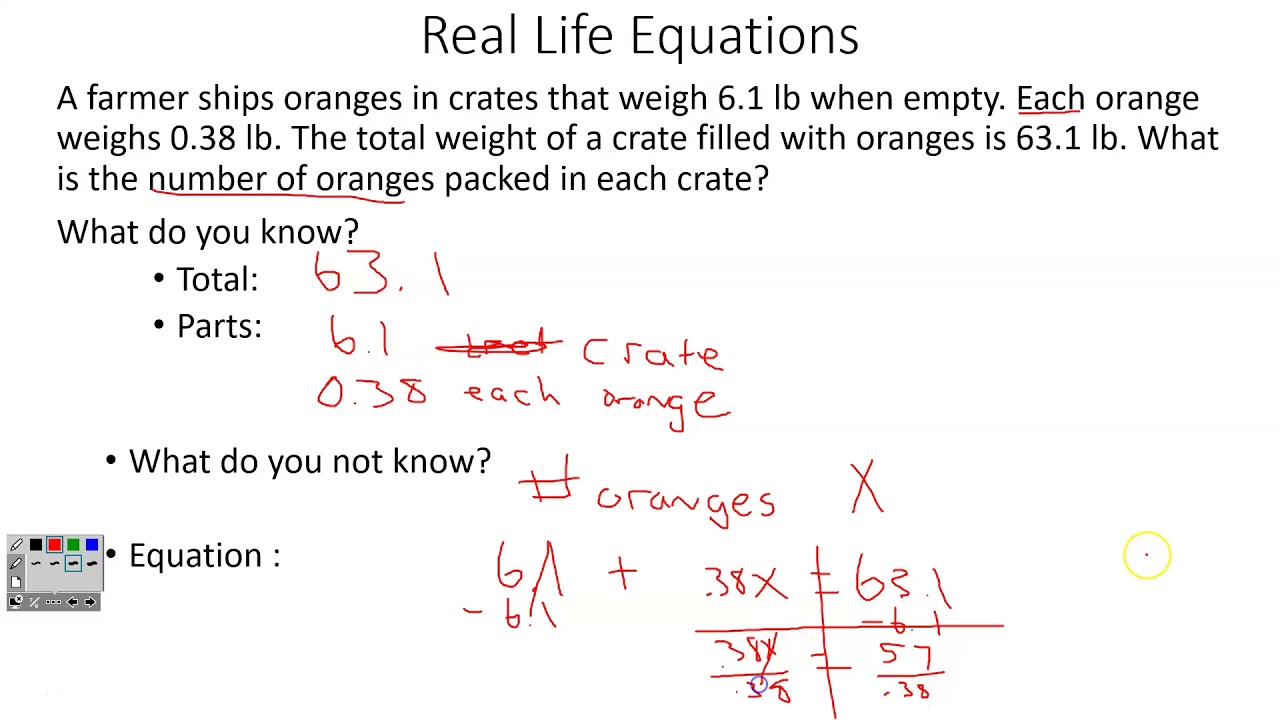 Real Life Equations
A farmer ships oranges in crates that weigh 6.1 lb when empty. Each orange
weighs 0.38 lb. The total weight of a crate filled with oranges is 63.1 lb. What
is the number of oranges packed in each crate?
What do you know?
• Total: 63.1
• Parts: 6.1 crate
0.38 each orange
• What do you not know?
# oranges X
• Equation : 6.1 + .38x = 63.1
- 6.1 - 6.1
.38x = 57
.38 .38